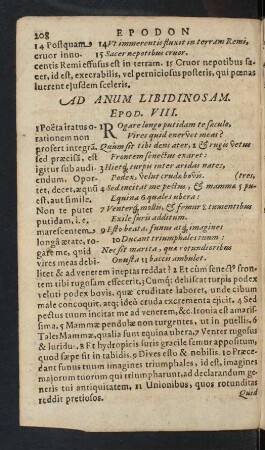 208 EPODON
14 Postquam 14Vt immerentis fluxit in terram Remi,
cruor inno- 15 Sacer nepotibus cruor.
centis Remi effusus est in terram. 15 Cruor nepotibus sa-
cer, id est, execrabilis, vel perniciosus posteris, qui pœnas
luerent ejusdem sceleris.
AD ANUM LIBIDINOSAM.
EPOD. VIII.
1 Poëta iratus o-
rationem non
profert integrā.
sed præcisā, est
igitur subaudi-
endum. Opor-
tet, decet, æquū
est, aut simile.
Non te putet
putidam, i.e.
marescentem
longâ ætate, ro-
gare me, quid
vires meas debi-
1 ROgare longo putidam te saculo,
Vires quid enervet meas?
Quum sit tibi dens ater, 2 & rugis vetus
Frontem senectus exaret:
3 Hietq́; turpis inter aridas nates,
Podex, velut cruda bovis. (tres,
4 Sed incitat me pectus, & mamma 5 pu-
Equina 6 quales ubera:
7 Venterq́; mollis, & femur 8 tumentibus
Exile suris additum.
9 Esto beata, funus atq́; imagines
10 Ducant triumphales tuum:
Nec sit marita, quæ rotundioribus
Onusta 11 baccis ambulet.
litet & ad venerem ineptas reddat? 2 Et cùm senectꝰ fron-
tem tibi rugosam effecerit, Cumq́; dehiscat turpis podex
veluti podex bovis, quæ cruditate laboret, unde cibum
male concoquit, atq́; ideò cruda excrementa ejicit. 4 Sed
pectus tuum incitat me ad venerem, &c. Ironia est amaris-
sima. 5 Mammæ pendulæ non turgentes, ut in puellis. 6
Tales Mammæ, qualia sunt equina ubera. 7 Venter rugosus
& luridꝰ. 8 Et hydropicis suris gracile femur appositum,
quod sæpe fit in tabidis. 9 Dives esto & nobilis. 10 Præce-
dant funus tuum imagines triumphales, id est, imagines
majorum tuorum qui triumpharunt, ad declarandum ge-
neris tui antiquitatem. 11 Unionibus, quos rotunditas
reddit pretiosos. Quid